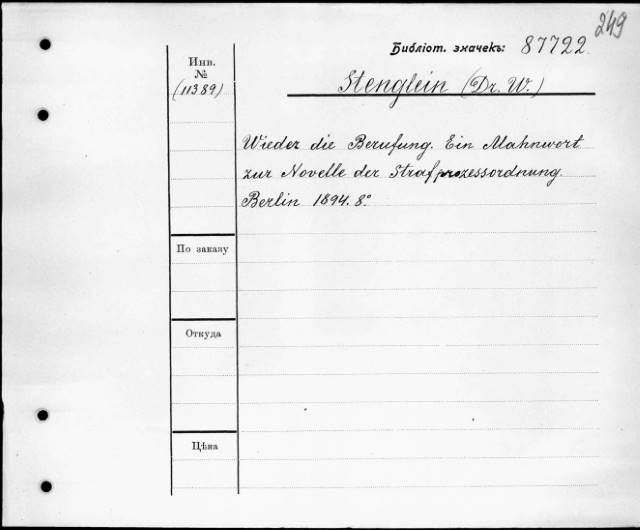 249
Библіот. значекъ: 87722.
Инв.
№
(11389)
Stenglein (Dr. W.)
Wieder die Berufung. Ein Mahnwort
zur Novelle der Strafprozessordnung.
Berlin 1894. 8.°
По заказу
Откуда
Цѣна